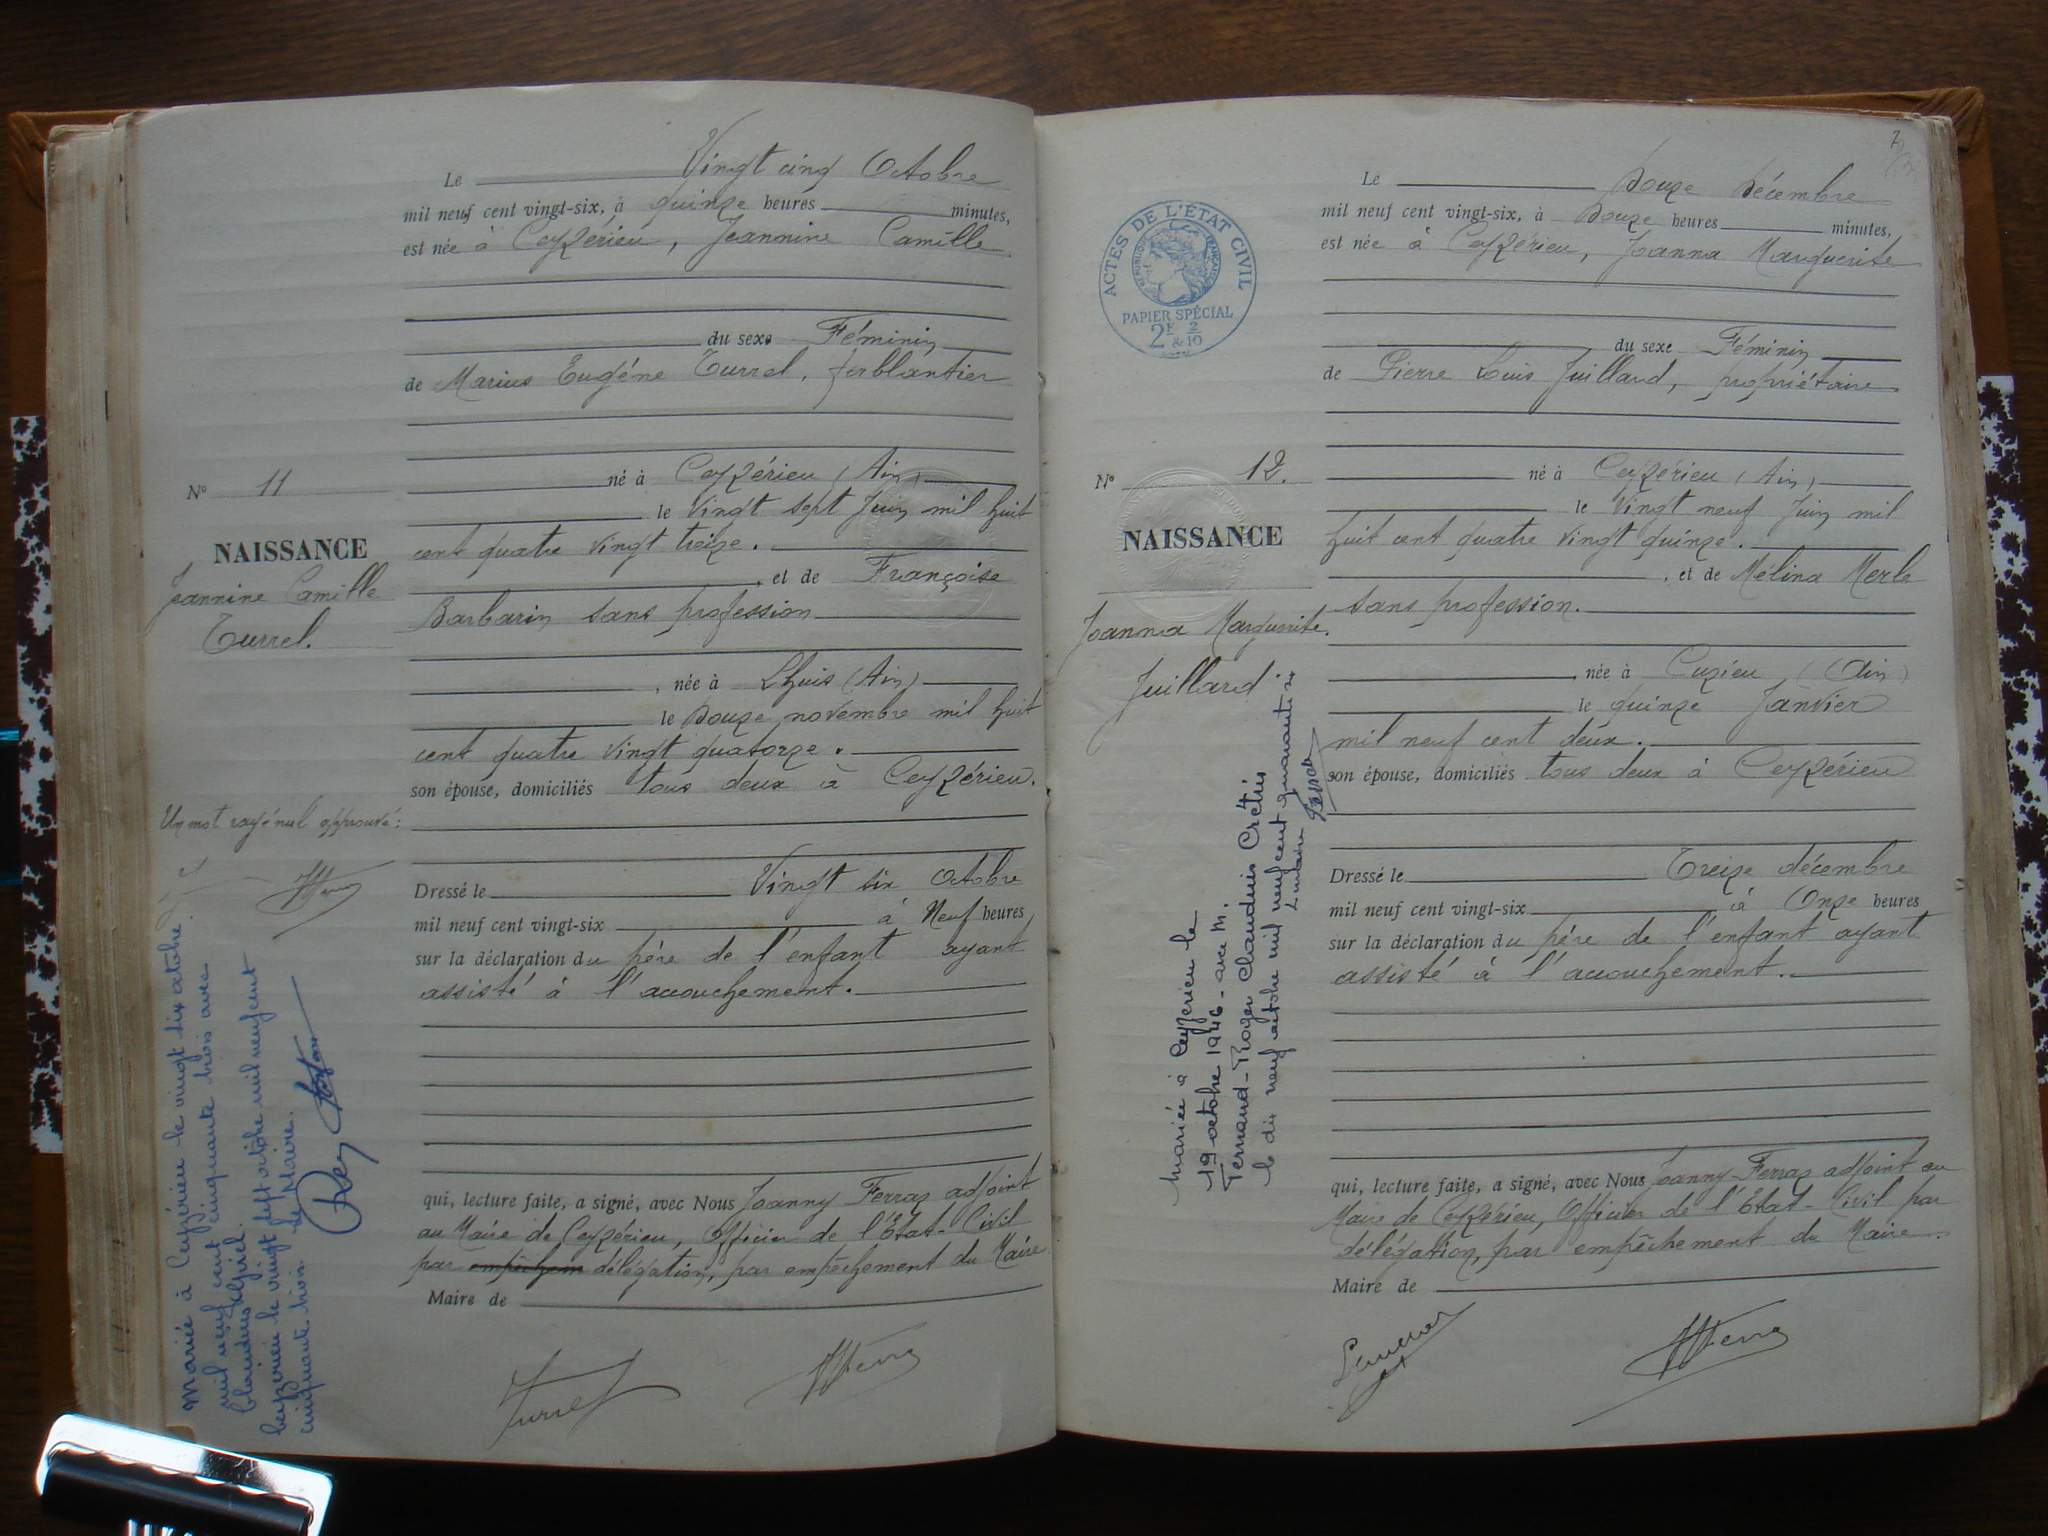 Le Vingt cinq Octobre
mil neuf cent vingt-six, à quinze heures minutes,
est née à Ceyzérieu, Jeannine Camille
du sexe Féminin
de Marius Eugène Turrel, ferblantier
né à Ceyzérieu (Ain)
le Vingt sept Juin mil huit
cent quatre vingt treize.
, et de Françoise
Barbarin sans profession
, née à Lhuis (Ain)
le Douze novembre mil huit
cent quatre vingt quatorze.
son épouse, domiciliés tous deux à Ceyzérieu.
Dressé le Vingt six Octobre
mil neuf cent vingt-six à Neuf heures
sur la déclaration du père de l'enfant ayant
assisté à l'accouchement.
qui, lecture faite, a signé, avec Nous Joanny Ferraz adjoint
au Maire de Ceyzérieu, Officier de l'État-Civil
par empêchem délégation, par empêchement du Maire
Maire de
Turrel
N° 11
NAISSANCE
Jeannine Camille
Turrel.
Un mot rayé nul approuvé:
Mariée à Ceyzérieu le vingt six octobre
mil neuf cent cinquante trois avec
Claudius
Ceyzérieu le vingt sept octobre mil neuf cent
cinquante trois. le Maire.
Rey
7
ACTES DE L'ÉTAT CIVIL
RÉPUBLIQUE FRANÇAISE
PAPIER SPÉCIAL
2F & 2/10
Le Douze Décembre
mil neuf cent vingt-six, à Douze heures minutes,
est née à Ceyzérieu, Joanna Marguerite
du sexe Féminin
de Pierre Louis Juilland, propriétaire
né à Ceyzérieu (Ain)
le Vingt neuf Juin mil
huit cent quatre vingt quinze.
, et de Mélina Merle
sans profession.
, née à Cuzieu (Ain)
le quinze Janvier
mil neuf cent deux.
son épouse, domiciliés tous deux à Ceyzérieu
Dressé le Treize décembre
mil neuf cent vingt-six à Onze heures
sur la déclaration du père de l'enfant ayant
assisté à l'accouchement.
qui, lecture faite, a signé, avec Nous Joanny Ferraz adjoint au
Maire de Ceyzérieu, Officier de l'État-Civil par
délégation, par empêchement du Maire.
Maire de
N° 12.
NAISSANCE
Joanna Marguerite.
Juilland.
Mariée à Ceyzérieu le
19 octobre 1946 - avec M.
Fernand-Roger Claudius Crétis
le dix neuf octobre mil neuf cent quarante six
Le maire